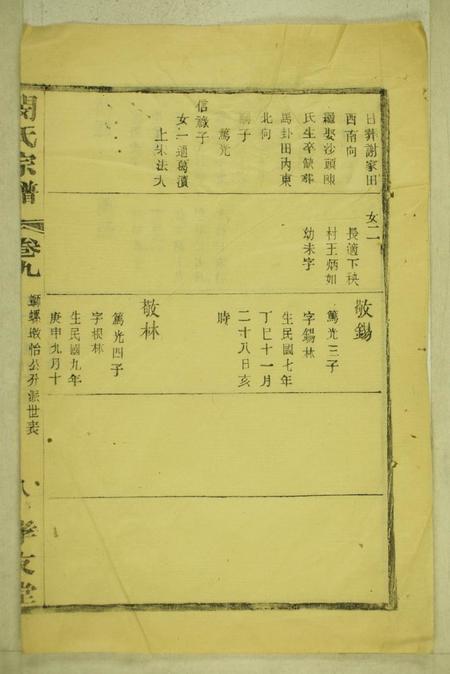 日葬謝家田
西南向
繼娶沙頭陳
氏生卒缺葬
馬卦田内東
北向
嗣子
篤光
信祿子
女一適葛濆
上朱法大
女二
長適下秧
村王炳如
幼未字
敬錫
篤光三子
字錫林
生民國七年
丁巳十一月
二十八日亥
時
敬林
篤光四子
字根林
生民國九年
庚申九月十
閔氏宗譜
卷九
螺墩怡公升派世表
八
孝友堂